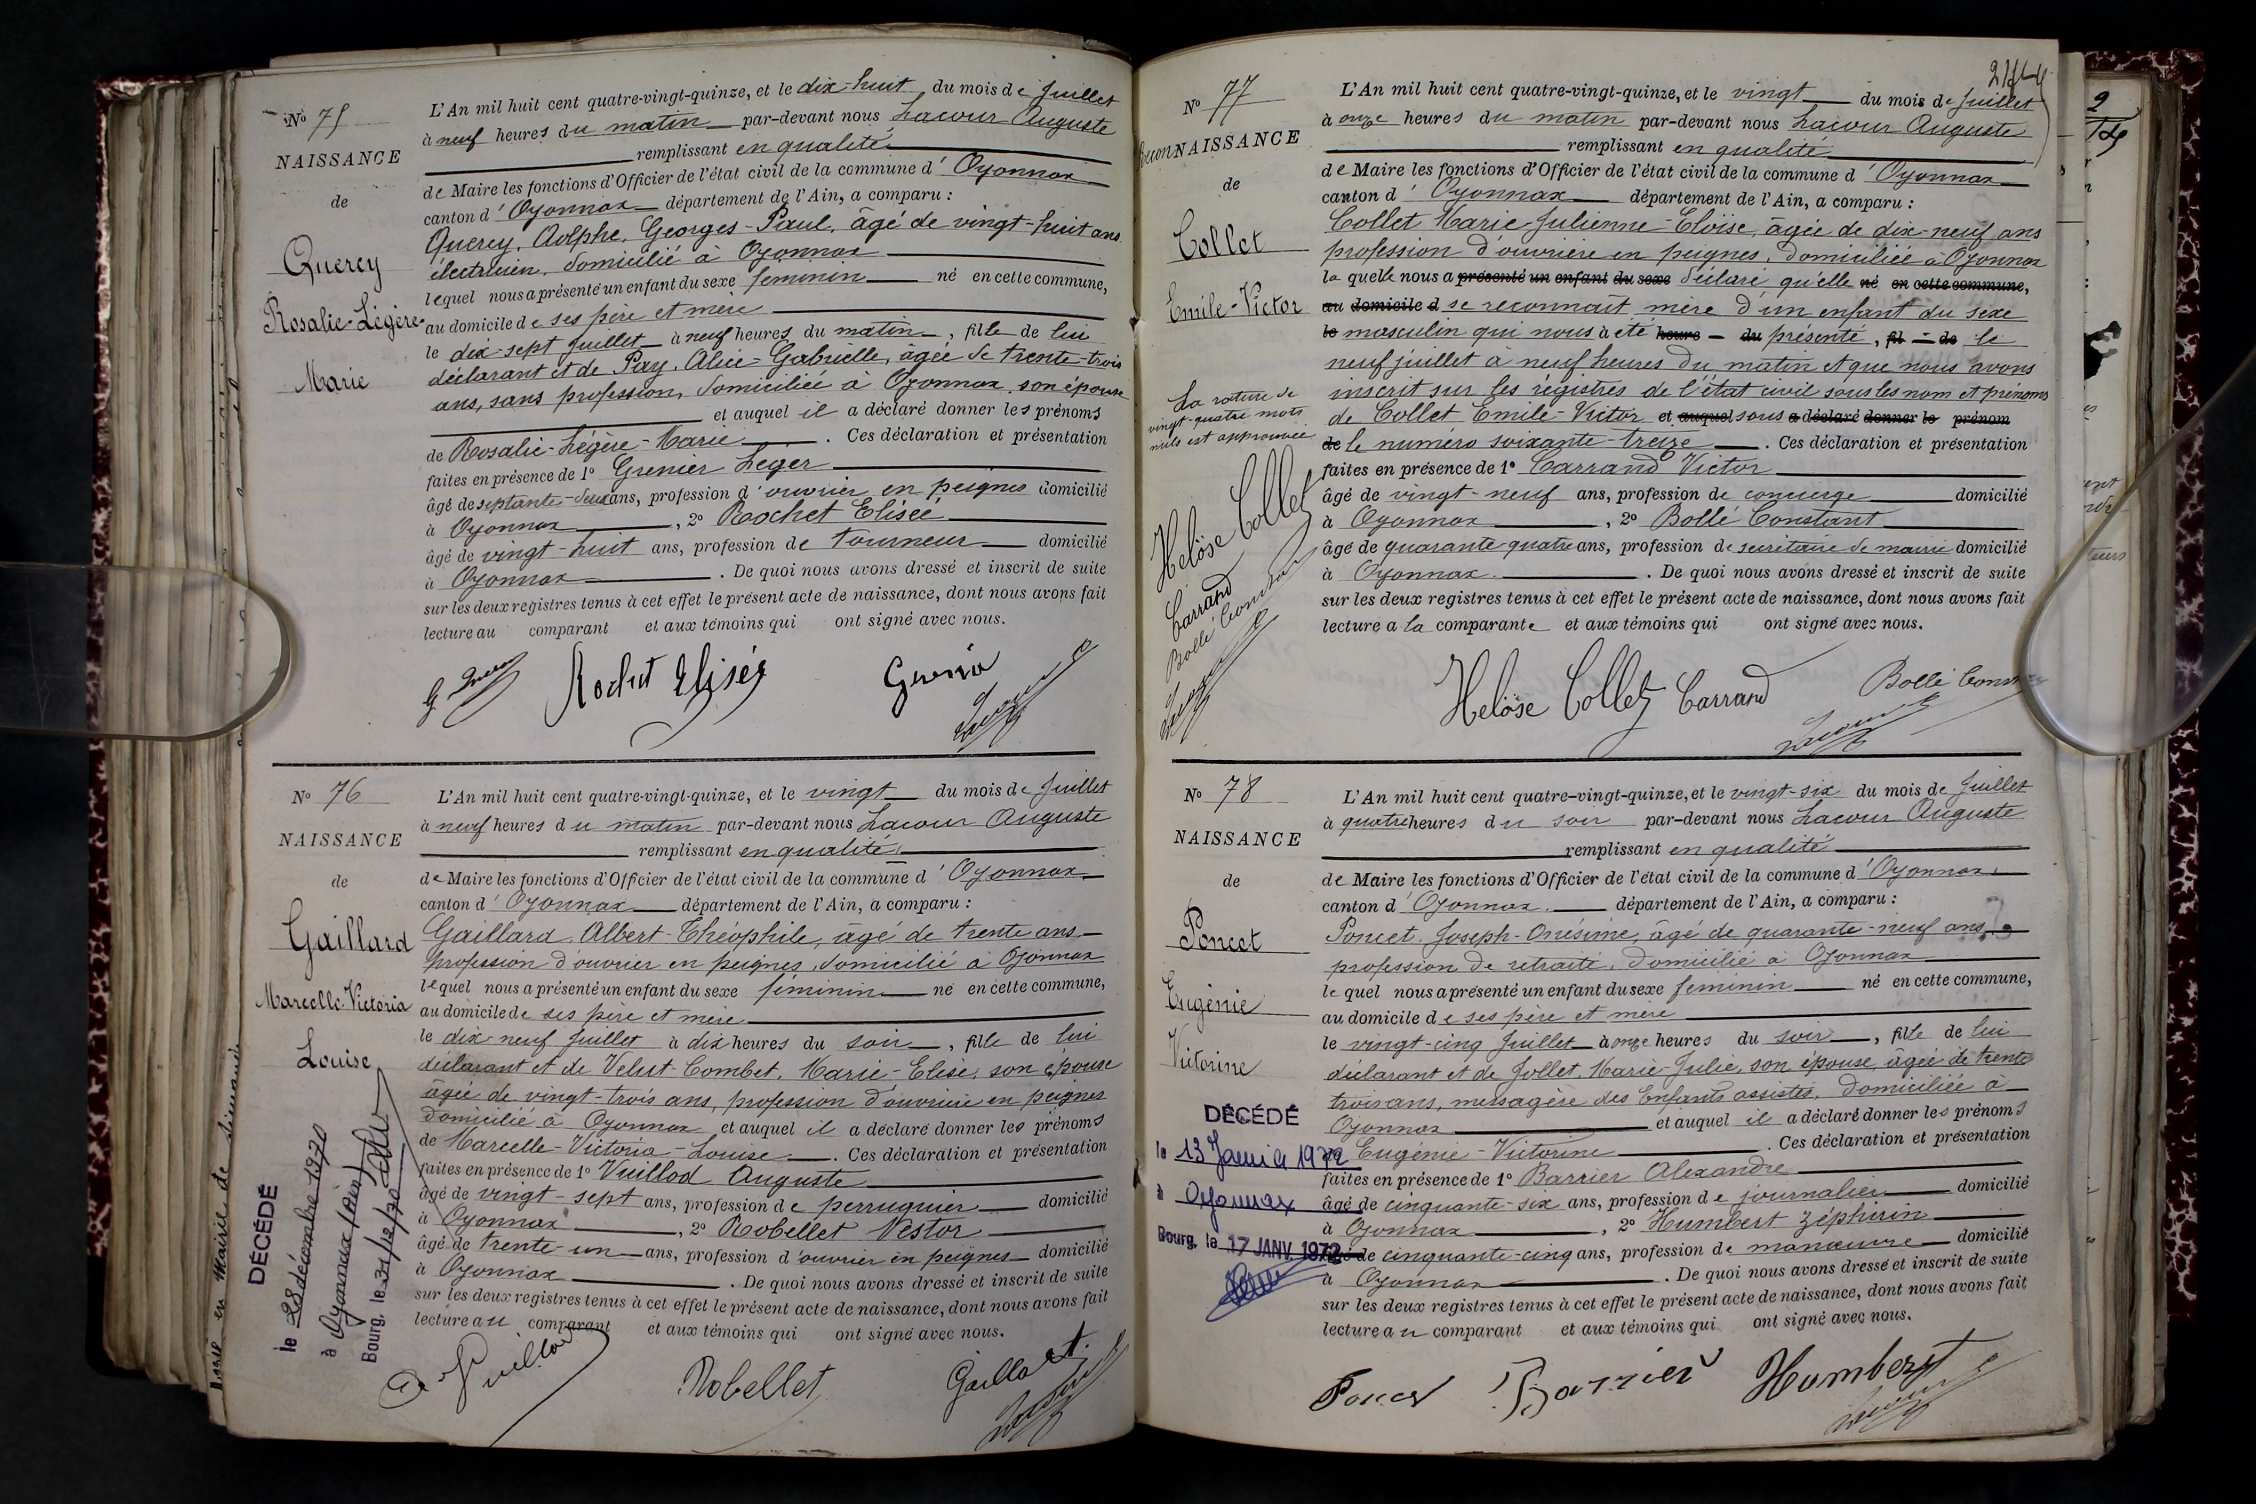 N° 75
NAISSANCE
de
Quercy
Rosalie-Légère
Marie
L'An mil huit cent quatre-vingt-quinze, et le dix-huit du mois de Juillet
à neuf heures du matin par-devant nous Lacour Auguste
remplissant en qualité
de Maire les fonctions d'Officier de l'état civil de la commune d'Oyonnax
canton d'Oyonnax département de l'Ain, a comparu :
Quercy, Adolphe, Georges-Paul, âgé de vingt-huit ans
électricien, domicilié à Oyonnax
lequel nous a présenté un enfant du sexe feminin né en cette commune,
au domicile de ses père et mère
le dix-sept Juillet à neuf heures du matin, fille de lui
déclarant et de Pay, Alice-Gabrielle, âgée de trente-trois
ans, sans profession, domiciliée à Oyonnax son épouse
et auquel il a déclaré donner les prénoms
de Rosalie-Légère-Marie. Ces déclaration et présentation
faites en présence de 1° Grenier Leger
âgé de septante-deux ans, profession d'ouvrier en peignes domicilié
à Oyonnax, 2° Rochet Elisée
âgé de vingt-huit ans, profession de tourneur domicilié
à Oyonnax. De quoi nous avons dressé et inscrit de suite
sur les deux registres tenus à cet effet le présent acte de naissance, dont nous avons fait
lecture au comparant et aux témoins qui ont signé avec nous.
Rochet Elisée
N° 76
NAISSANCE
de
Gaillard
Marcelle-Victoria
Louise
DÉCÉDÉ
le 28 décembre 1970
à Oyonnax (Ain)
Bourg, le 31/12/70
L'An mil huit cent quatre-vingt-quinze, et le vingt du mois de Juillet
à neuf heures du matin par-devant nous Lacour Auguste
remplissant en qualité
de Maire les fonctions d'Officier de l'état civil de la commune d'Oyonnax
canton d'Oyonnax département de l'Ain, a comparu :
Gaillard, Albert-Théophile, âgé de trente ans
profession d'ouvrier en peignes, domicilié à Oyonnax
lequel nous a présenté un enfant du sexe féminin né en cette commune,
au domicile de ses père et mère
le dix-neuf Juillet à dix heures du soir, fille de lui
déclarant et de Velut-Combet, Marie-Elise, son épouse
âgée de vingt-trois ans, profession d'ouvrière en peignes
domicilié à Oyonnax et auquel il a déclaré donner les prénoms
de Marcelle-Victoria-Louise. Ces déclaration et présentation
faites en présence de 1° Vuillod Auguste
âgé de vingt-sept ans, profession de perruquier domicilié
à Oyonnax, 2° Robellet Nestor
âgé de trente-un ans, profession d'ouvrier en peignes domicilié
à Oyonnax. De quoi nous avons dressé et inscrit de suite
sur les deux registres tenus à cet effet le présent acte de naissance, dont nous avons fait
lecture au comparant et aux témoins qui ont signé avec nous.
Robellet
N° 77
NAISSANCE
de
Collet
Emile-Victor
La rature de
vingt-quatre mots
nuls est approuvée
Heloïse Collet
Carrand
Bollé Constant
L'An mil huit cent quatre-vingt-quinze, et le vingt du mois de Juillet
à onze heures du matin par-devant nous Lacour Auguste
remplissant en qualité
de Maire les fonctions d'Officier de l'état civil de la commune d'Oyonnax
canton d'Oyonnax département de l'Ain, a comparu :
Collet Marie Julienne-Eloïse, âgée de dix-neuf ans
profession d'ouvrière en peignes, domiciliée à Oyonnax
la quelle nous a présenté un enfant du sexe déclaré qu'elle né en cette commune,
au domicile d se reconnaît mère d'un enfant du sexe
le masculin qui nous a été heure du présenté, fil de le
neuf juillet à neuf heures du matin et que nous avons
inscrit sur les registres de l'état civil sous les nom et prénoms
de Collet Emile-Victor et auquel sous a déclaré donner le prénom
de le numéro soixante-treize. Ces déclaration et présentation
faites en présence de 1° Carrand Victor
âgé de vingt-neuf ans, profession de concierge domicilié
à Oyonnax, 2° Bollé Constant
âgé de quarante quatre ans, profession de secrétaire de mairie domicilié
à Oyonnax. De quoi nous avons dressé et inscrit de suite
sur les deux registres tenus à cet effet le présent acte de naissance, dont nous avons fait
lecture a la comparante et aux témoins qui ont signé avec nous.
Heloïse Collet Carrand Bollé Constant
N° 78
NAISSANCE
de
Poncet
Eugénie
Victorine
DÉCÉDÉ
le 13 Janvier 1972
à Oyonnax
Bourg, le 17 JANV. 1972
L'An mil huit cent quatre-vingt-quinze, et le vingt-six du mois de Juillet
à quatre heures du soir par-devant nous Lacour Auguste
remplissant en qualité
de Maire les fonctions d'Officier de l'état civil de la commune d'Oyonnax
canton d'Oyonnax département de l'Ain, a comparu :
Poncet, Joseph-Onésime, âgé de quarante-neuf ans
profession de retraité, domicilié à Oyonnax
le quel nous a présenté un enfant du sexe féminin né en cette commune,
au domicile de ses père et mère
le vingt-cinq Juillet à onze heures du soir, fille de lui
déclarant et de Jollet, Marie-Julie, son épouse, âgée de trente
trois ans, messagère des Enfants assistés, domiciliée à
Oyonnax et auquel il a déclaré donner les prénoms
Eugénie-Victorine. Ces déclaration et présentation
faites en présence de 1° Barrier Alexandre
âgé de cinquante-six ans, profession de journalier domicilié
à Oyonnax, 2° Humbert Zéphirin
âgé de cinquante-cinq ans, profession de manœuvre domicilié
à Oyonnax. De quoi nous avons dressé et inscrit de suite
sur les deux registres tenus à cet effet le présent acte de naissance, dont nous avons fait
lecture au comparant et aux témoins qui ont signé avec nous.
Poncet Barrier Humbert